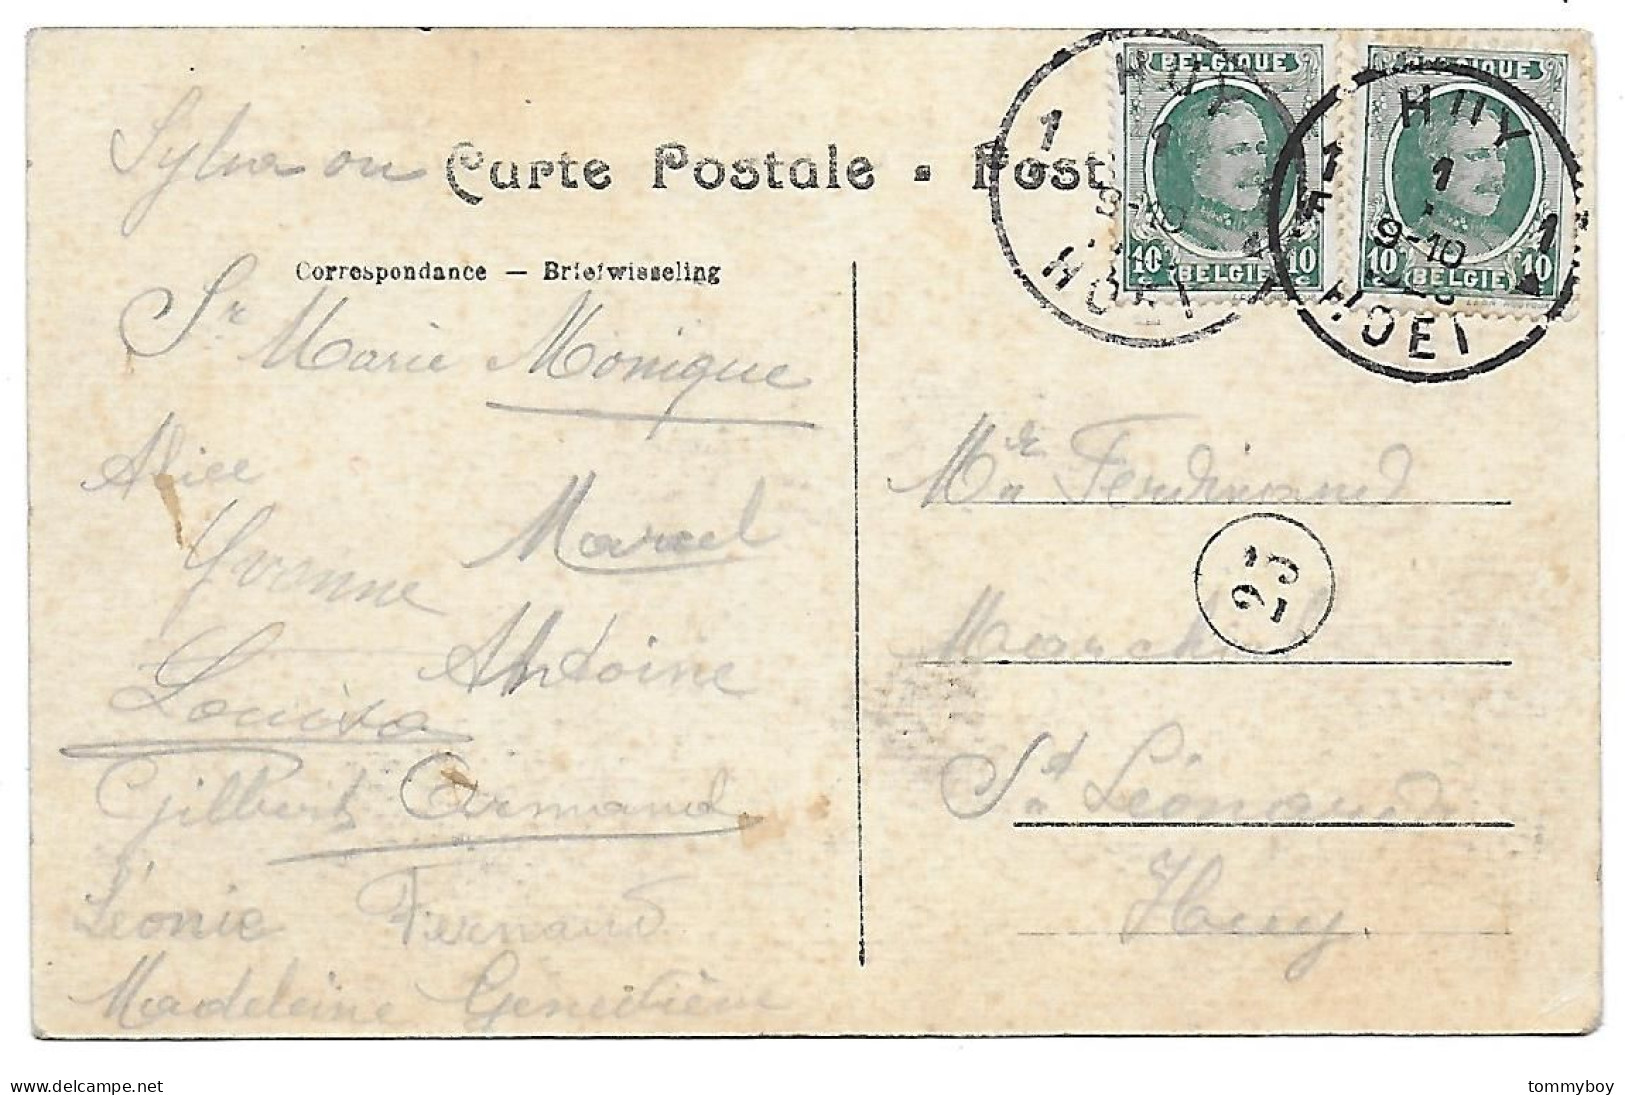 BELGIQUE
10 BELGIE 10
BELGIQUE
10 BELGIE 10
HUY
1
1
HOEI
HUY
1 1 1
9-10
HOEI
Carte Postale
Correspondance — Briefwisseling
Sr Marie Monique
Alice
Marcel
Yvonne
Antoine
Louisa
Gilbert Armand
Léonie Fernand
Madeleine Geneviève
Mr Ferdinand
23
St Léonard
Huy.
delcampe.net
tommyboy